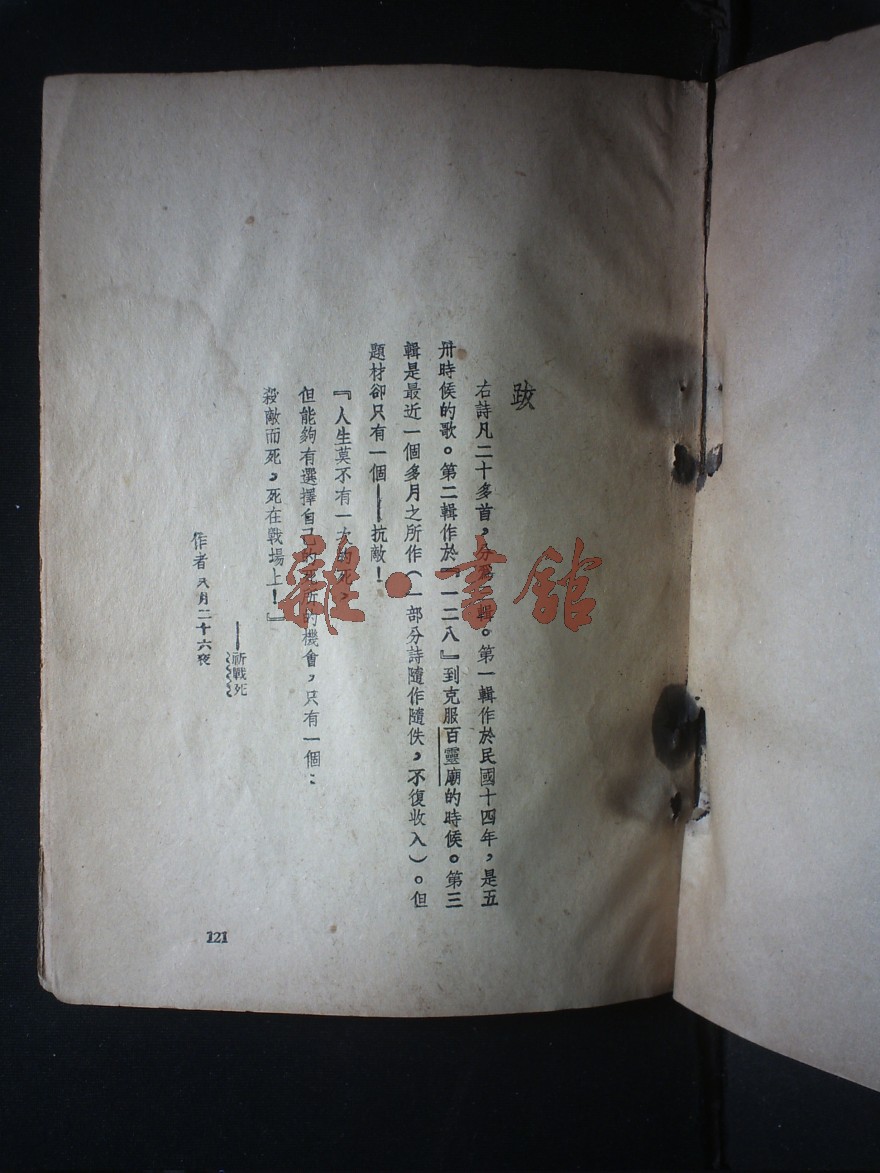 跋
右詩凡二十多首,分爲輯。第一輯作於民國十四年,是五
卅時候的歌。第二輯作於『一二八』到克服百靈廟的時候。第三
輯是最近一個多月之所作(一部分詩隨作隨佚,不復收入)。但
題材卻只有一個——抗敵!
『人生莫不有一次的死,
但能夠有選擇自己的死所的機會,只有一個:
殺敵而死,死在戰場上!』
——祈戰死
作者 八月二十六夜
121
雜·書館